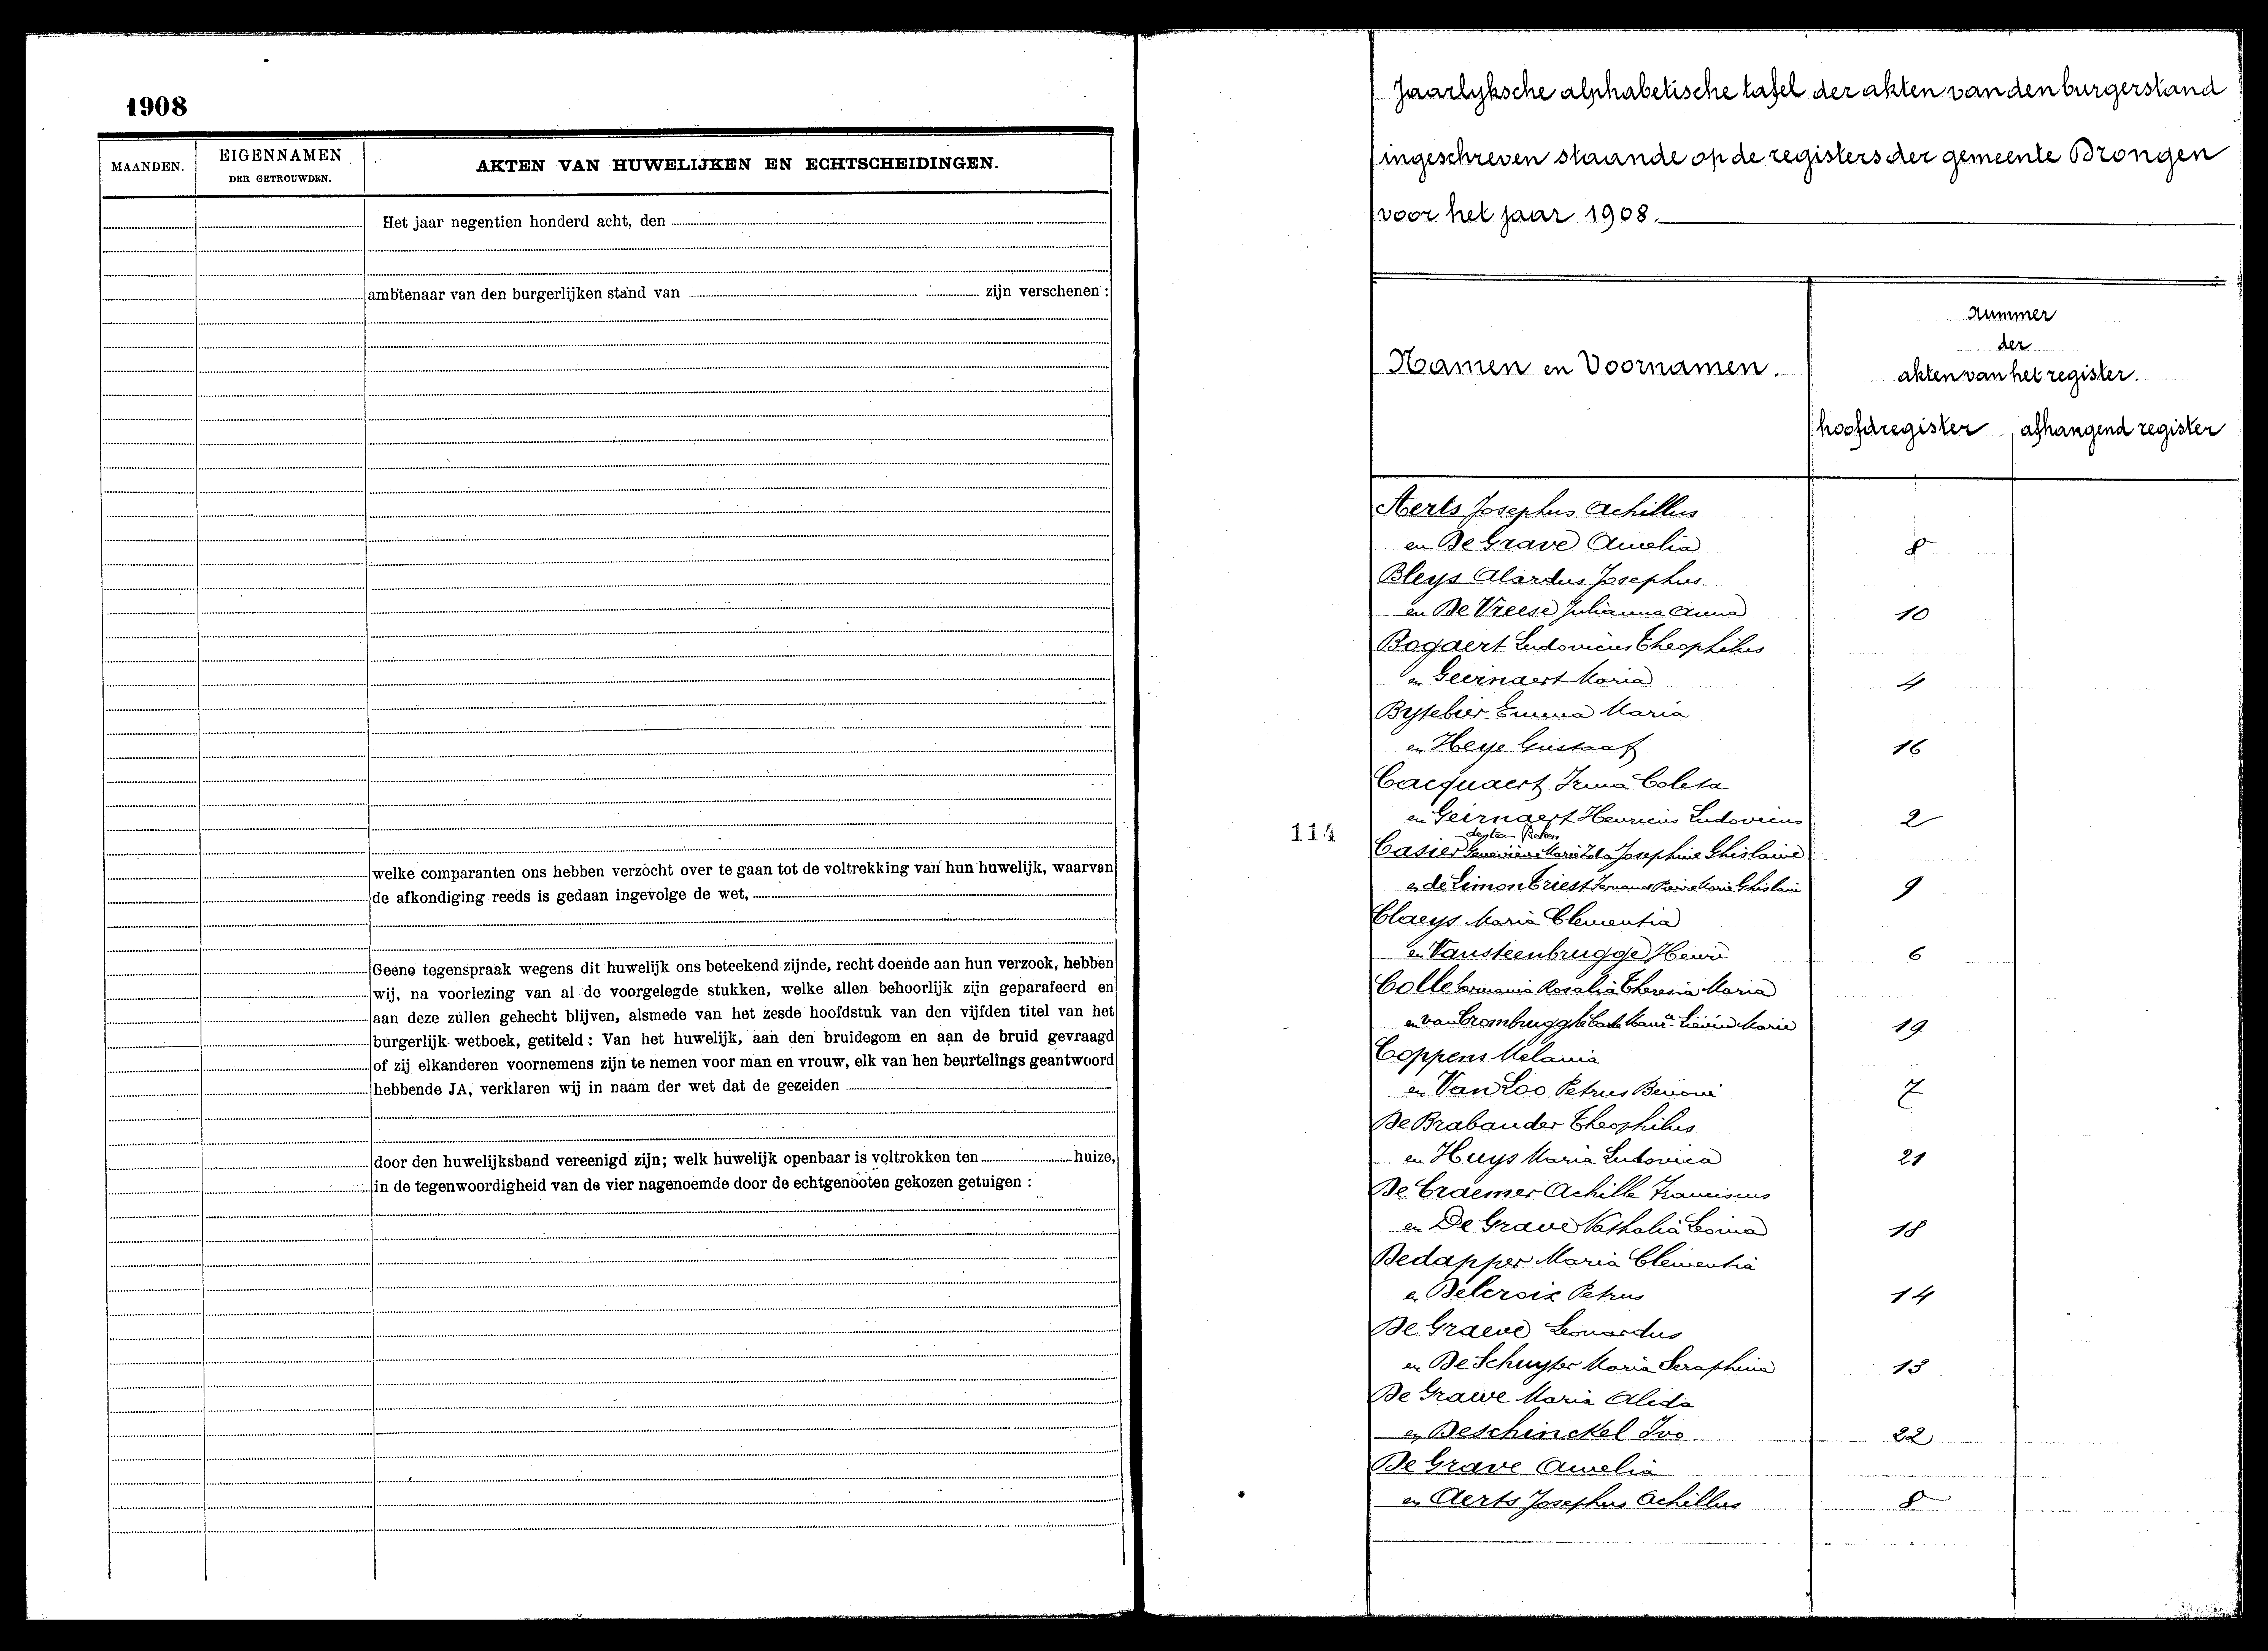 1908
MAANDEN.
EIGENNAMEN
DER GETROUWDEN.
AKTEN VAN HUWELIJKEN EN ECHTSCHEIDINGEN.
Het jaar negentien honderd acht, den
ambtenaar van den burgerlijken stand van zijn verschenen :
welke comparanten ons hebben verzocht over te gaan tot de voltrekking van hun huwelijk, waarvan
de afkondiging reeds is gedaan ingevolge de wet,
Geene tegenspraak wegens dit huwelijk ons beteekend zijnde, recht doende aan hun verzoek, hebben
wij, na voorlezing van al de voorgelegde stukken, welke allen behoorlijk zijn geparafeerd en
aan deze zullen gehecht blijven, alsmede van het zesde hoofdstuk van den vijfden titel van het
burgerlijk wetboek, getiteld : Van het huwelijk, aan den bruidegom en aan de bruid gevraagd
of zij elkanderen voornemens zijn te nemen voor man en vrouw, elk van hen beurtelings geantwoord
hebbende JA, verklaren wij in naam der wet dat de gezeiden
door den huwelijksband vereenigd zijn; welk huwelijk openbaar is voltrokken ten huize,
in de tegenwoordigheid van de vier nagenoemde door de echtgenooten gekozen getuigen :
Jaarlyksche alphabetische tafel der akten van den burgerstand
ingeschreven staande op de registers der gemeente Drongen
voor het jaar 1908.
Namen en Voornamen.
nummer
der
akten van het register.
hoofdregister afhangend register
Aerts Josephus Achillus
en De Grave Amelia 8
Bleys Alardus Josephus
en De Vreese Julianna Anna 10
Bogaert Ludovicus Theophilus
en Geernaert Maria 4
Bytebier Emma Maria
en Heye Gustaaf 16
Cacquaert Irma Coleta
en Geirnaert Henricus Ludovicus 2
114
Casier Geneviève Marie Josephine Ghislaine
en de Limon Triest Fernand Pierre Marie Ghislain 9
Claeys Maria Clementia
en Vansteenbrugge Henri 6
Colle Germania Rosalia Theresia Maria
en van Crombrugghe Marie 19
Coppens Melania
en Van Loo Petrus Benoni 7
De Brabander Theophilus
en Huys Maria Ludovica 21
De Craemer Achille Franciscus
en De Grave Nathalia Leonia 18
Dedapper Maria Clementia
en Delcroix Petrus 14
De Graeve Leonardus
en De Schuyter Maria Seraphina 13
De Grawe Maria Alida
en Deschinckel Ivo 22
De Grave Amelia
en Aerts Josephus Achillus 8